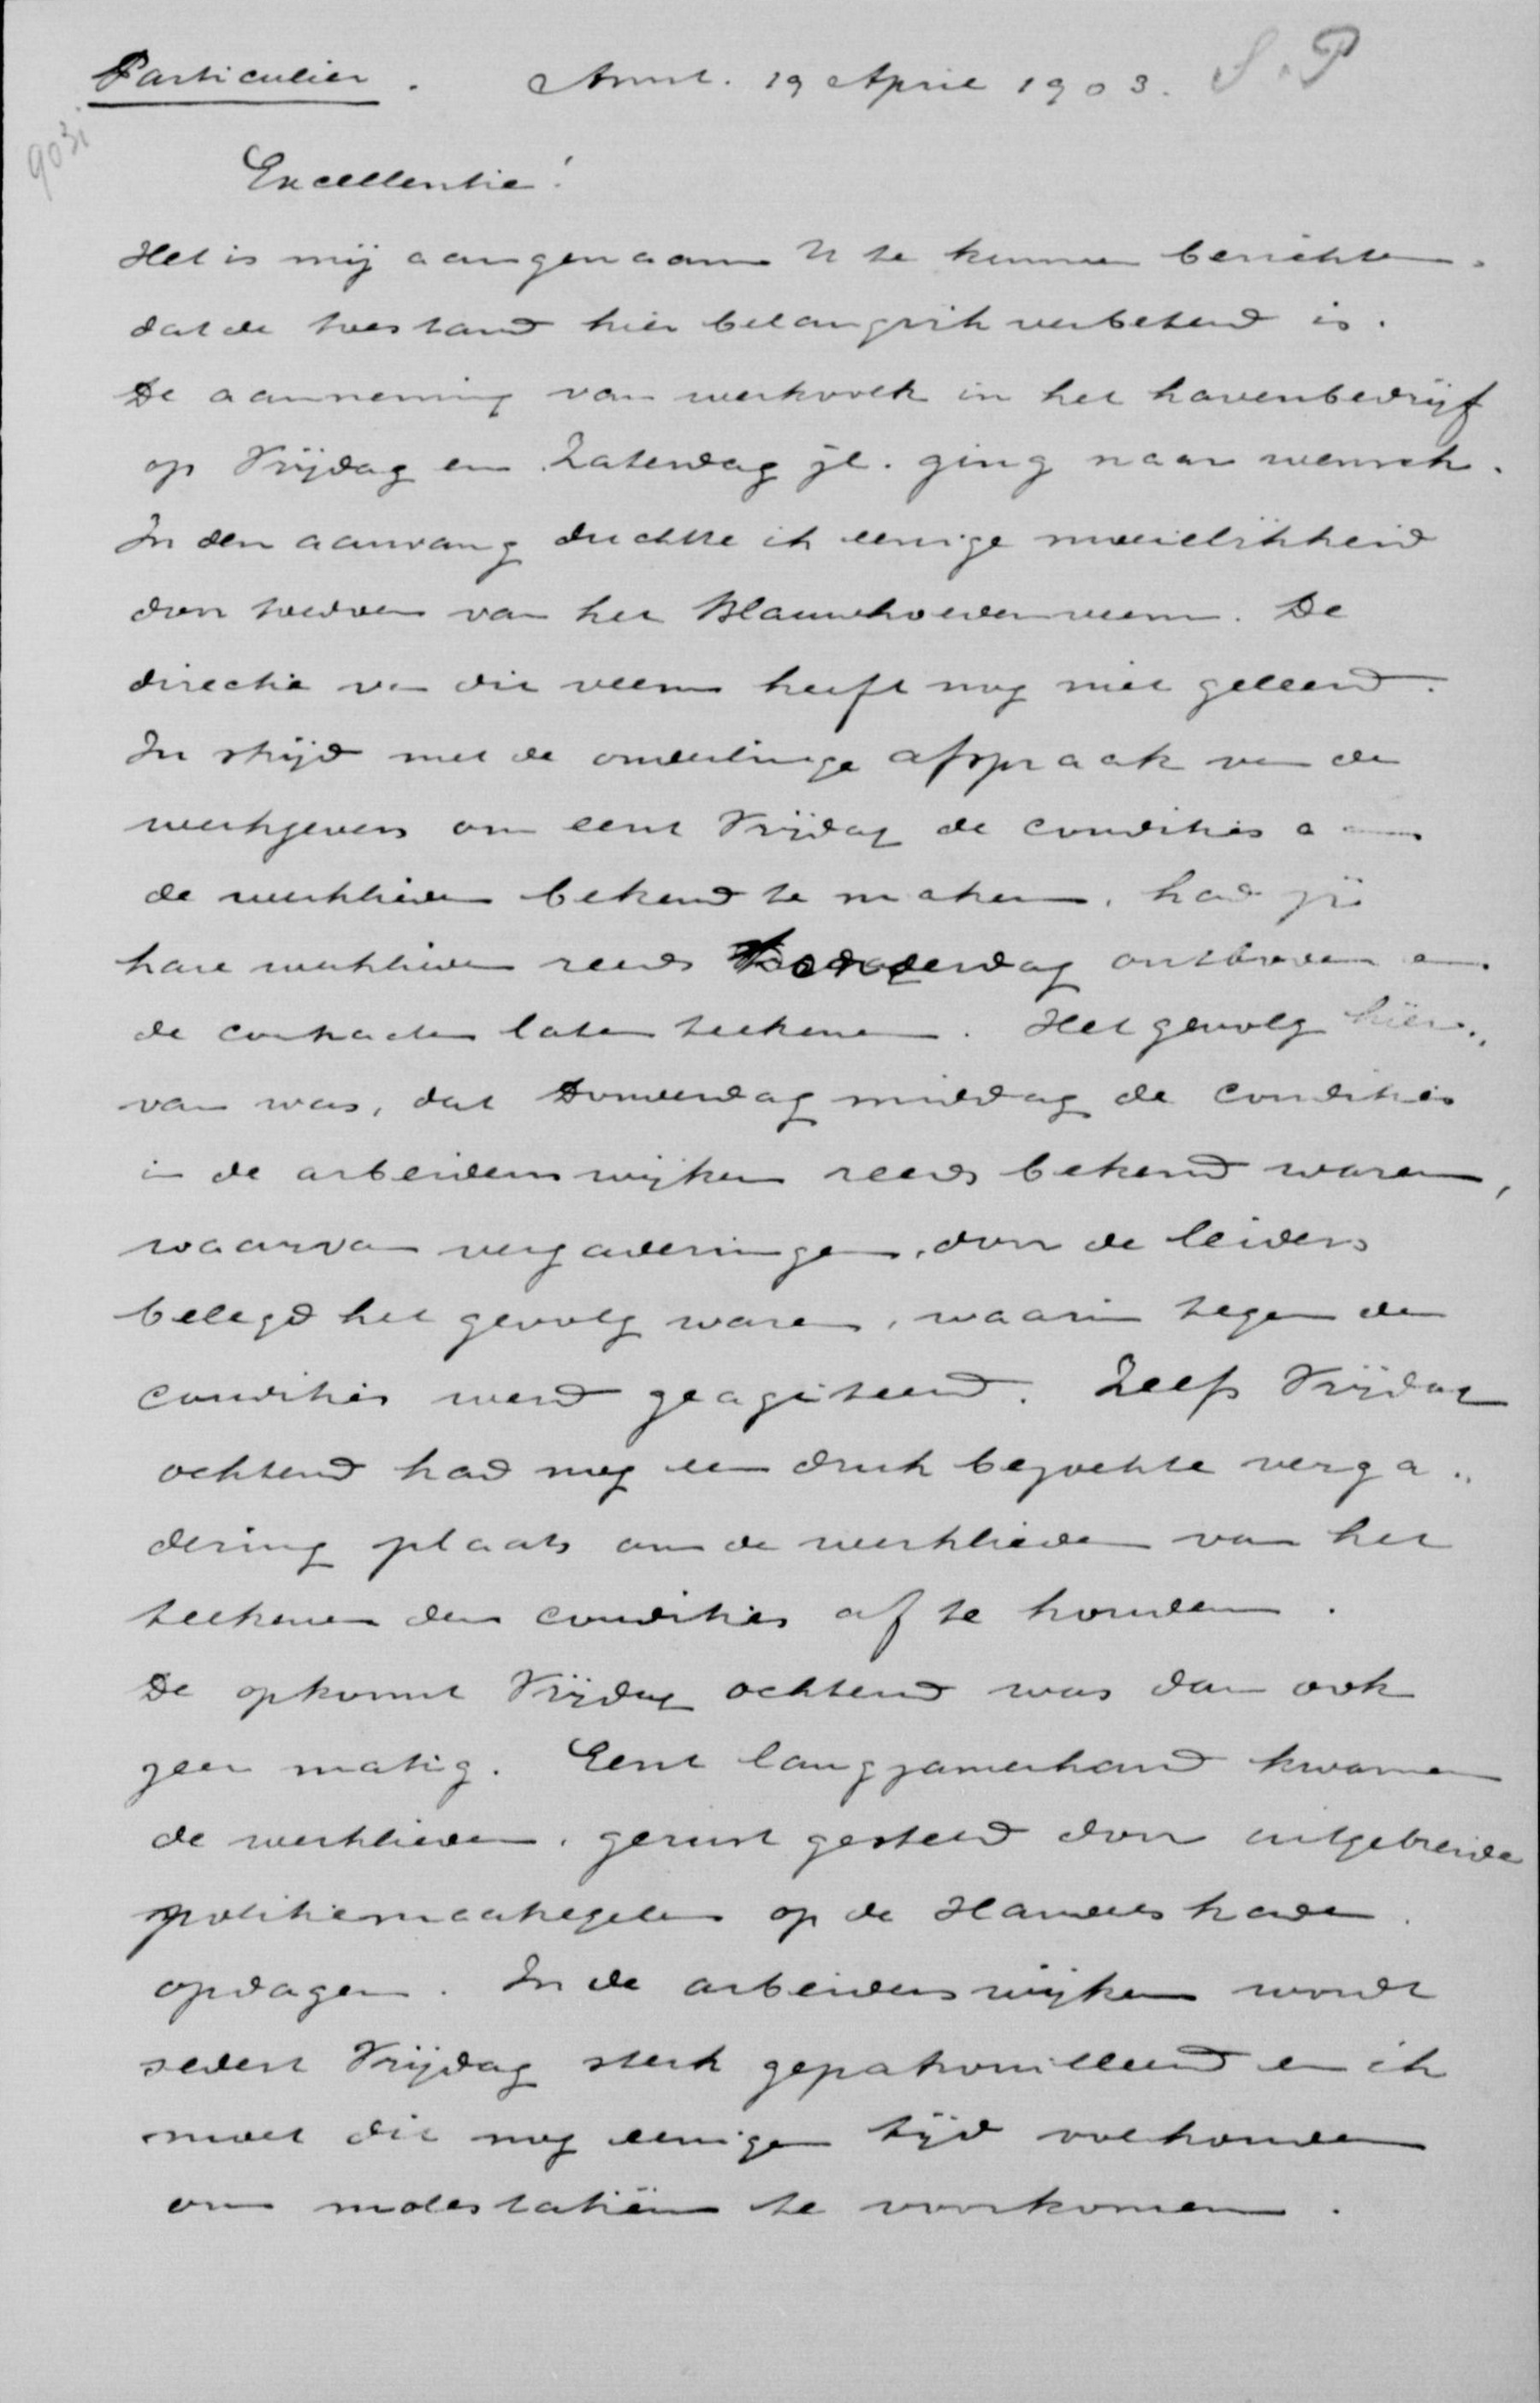 Particulier. Amst. 19 April 1903. S.P
903i
Excellentie!
Het is mij aangenaam U te kunnen berichten
dat de toestand hier belangrijk verbeterd is.
De aanneming van werkvolk in het havenbedrijf
op Vrijdag en Zaterdag jl. ging naar wensch.
In den aanvang duchtte ik eenige moeielijkheid
door toedoen van het Blauwhoedenveem. De
directie van dit veem heeft nog niet geleerd.
In strijd met de onderlinge afspraak van de
werkgevers om eerst Vrijdag de condities aan
de werklieden bekend te maken, had zij
hare werklieden reeds Donderdag ontboden en
de contracten laten teekenen. Het gevolg hier„
van was, dat Donderdag middag de condities
in de arbeiderswijken reeds bekend waren,
waarvan vergaderingen, door de leiders
belegd het gevolg waren, waarin tegen de
condities werd geagiteerd. Zelfs Vrijdag
ochtend had nog een druk bezochte verga„
dering plaats om de werklieden van het
teekenen der condities af te houden.
De opkomst Vrijdag ochtend was dan ook
zeer matig. Eerst langzamerhand kwamen
de werklieden, gerust gesteld door uitgebreide
politiemaatregelen op de Handelskade
opdagen. In de arbeiderswijken wordt
sedert Vrijdag sterk gepatrouilleerd en ik
moet dit nog eenigen tijd volhouden
om molestatiën te voorkomen.